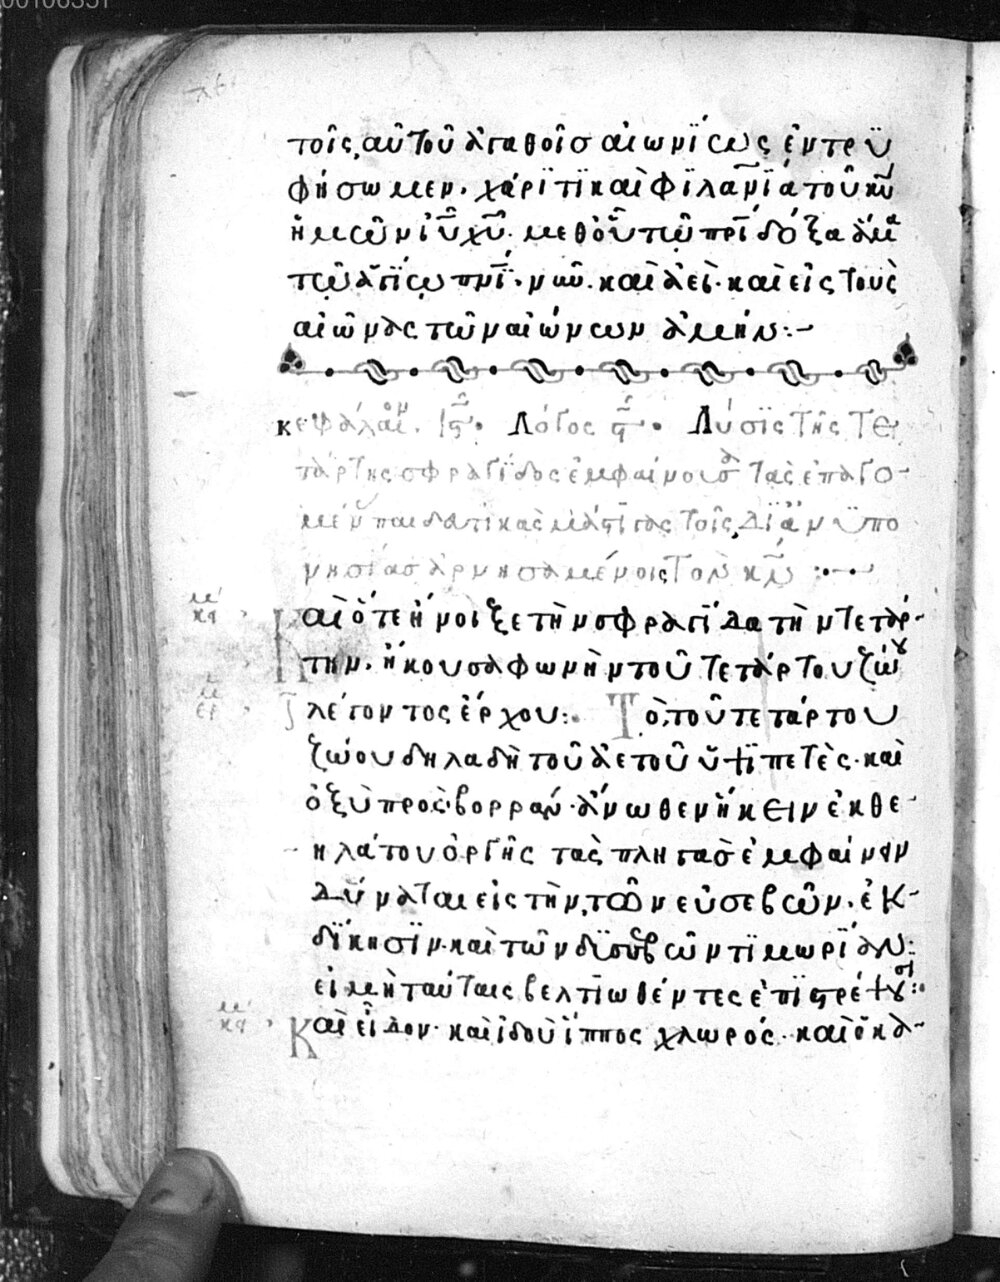 τοῖς αὐτοῦ ἀγαθοῖσ αἰωνΐως ἐντρϋ
φήσωμεν. χάρϊτϊ καὶ φϊλανϊα τοῦ κυ
ἡμῶν ιυ χυ. μεθ οὗ τῶ πρι δόξα ἅμα
τῶ ἁγίω πνι. νῦν. καὶ ἀεὶ. καὶ εἰς τοὺς
αἰῶνας τῶν αἰώνων ἀμήν:~
κεφάλαιον. ις. Λόγος ς. Λύσϊς τῆς τε
τάρτης σφραγΐδος ἐμφαίνουσα τὰς ἐπαγο
μένας παιδευτικὰς μάστιγας τοῖς δϊ ἀνϋπο
μνησίασ ἀρνησαμένοις τὸν κν :·~·
Καὶ ὅτε ἤνοιξε τὴν σφραγῖδα τὴν τετάρ
την. ἤκουσα φωνὴν τοῦ τετάρτου ζώου
λέγοντος ἔρχου: Τὸ τοῦ τετάρτου
ζώου δηλαδὴ τοῦ ἀετοῦ ὑψϊπετὲς. καὶ
ὀξὺ πρὸς βορρὰν. ἄνωθεν ἥκειν ἐκ θε
ηλάτου ὀργῆς τὰς πληγὰσ ἐμφαίνειν
δύναται εἰς τὴν τῶν εὐσεβῶν. ἐκ
δΐκησϊν. καὶ τῶν δϊσσεβῶν τϊμωρΐαν:
εἰ μὴ ταύταις βελτϊωθέντες ἐπϊστρέψουσι:
Καὶ εἶδον. καὶ ἰδοὺ ἵππος χλωρός. καὶ ὁ κα